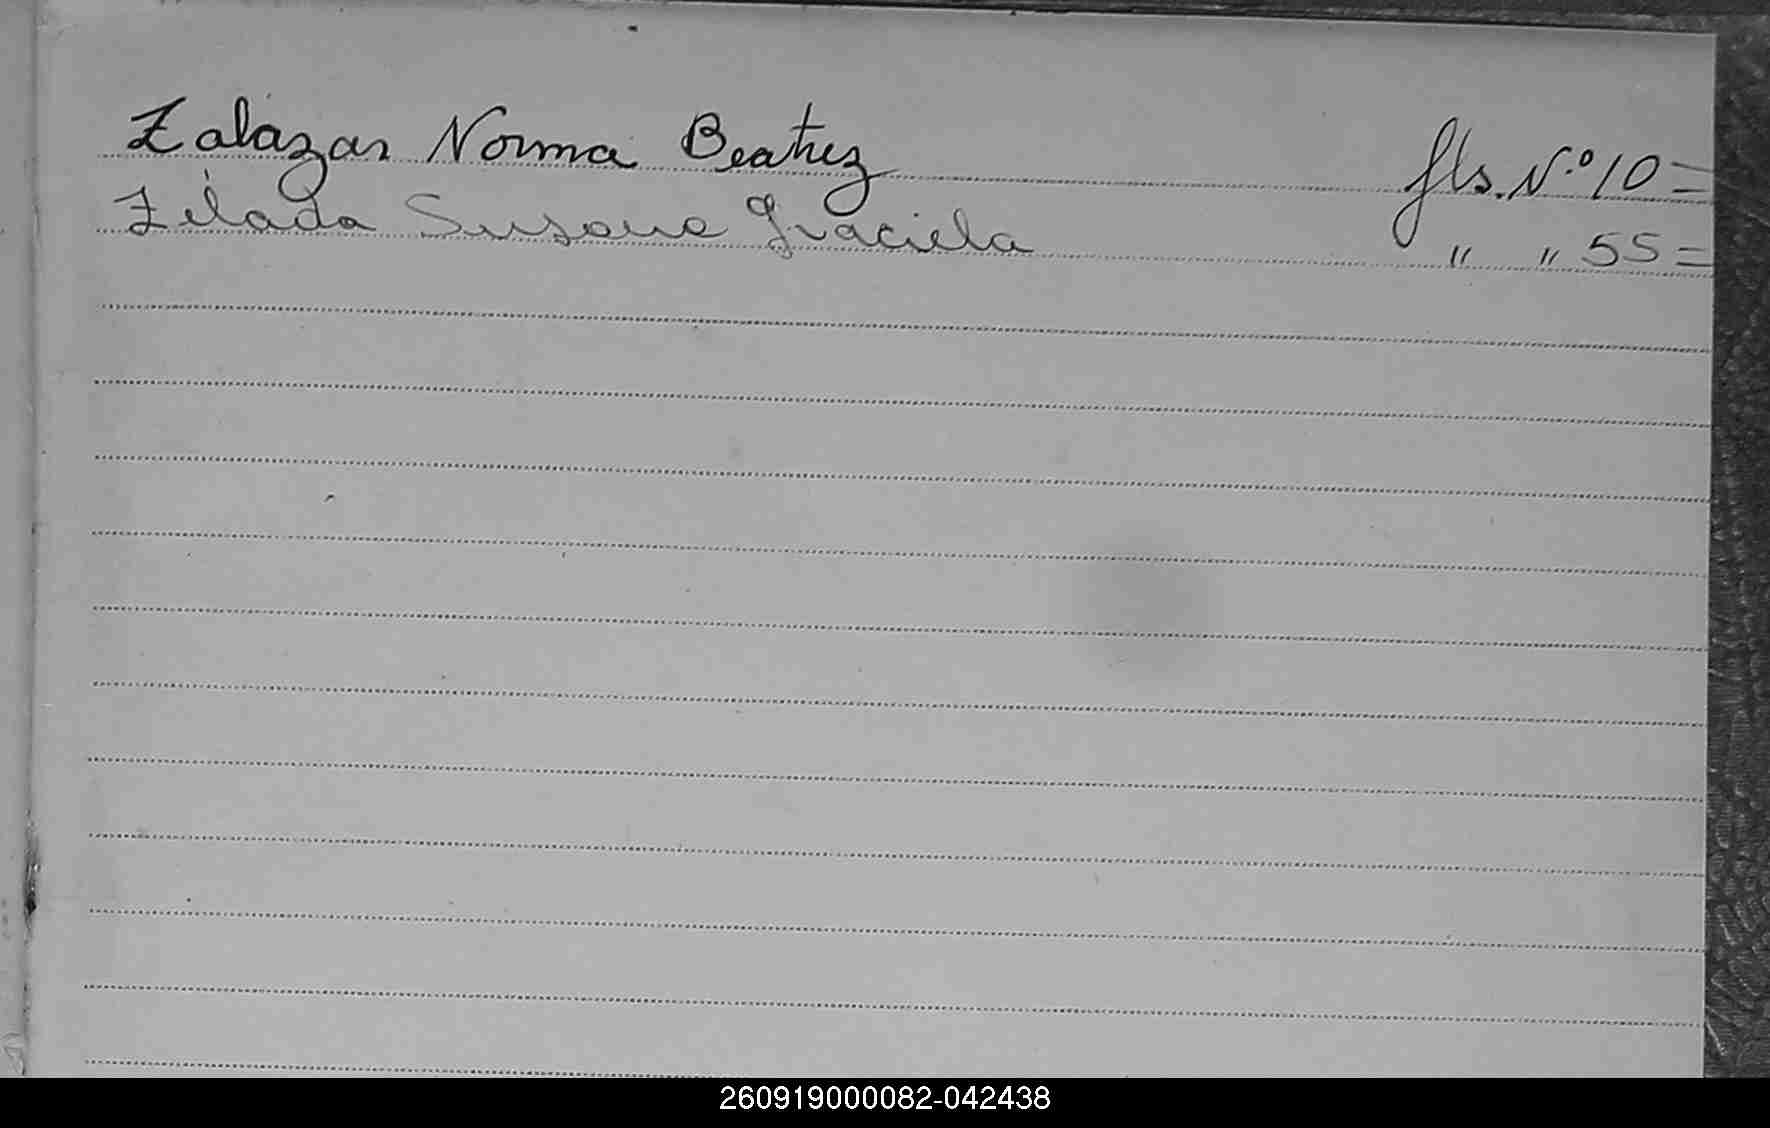 Zalazar Norma Beatriz fls. Nº 10=
Zelada Susana Graciela " " 55=
260919000082-042438